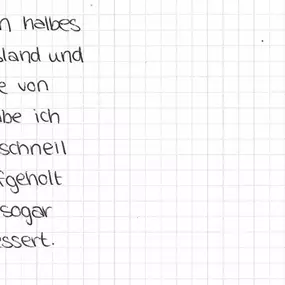 n halbes
land und
e von
be ich
schnell
fgeholt
sogar
ssert.